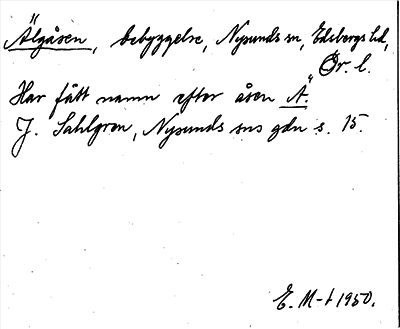 Älgåsen, bebyggelse, Nysunds sn, Edsbergs hd,
Ör. l.
Har fått namn efter åsen Ä.
J. Sahlgren, Nysunds sns gdn s. 15.
E. M-t 1950.